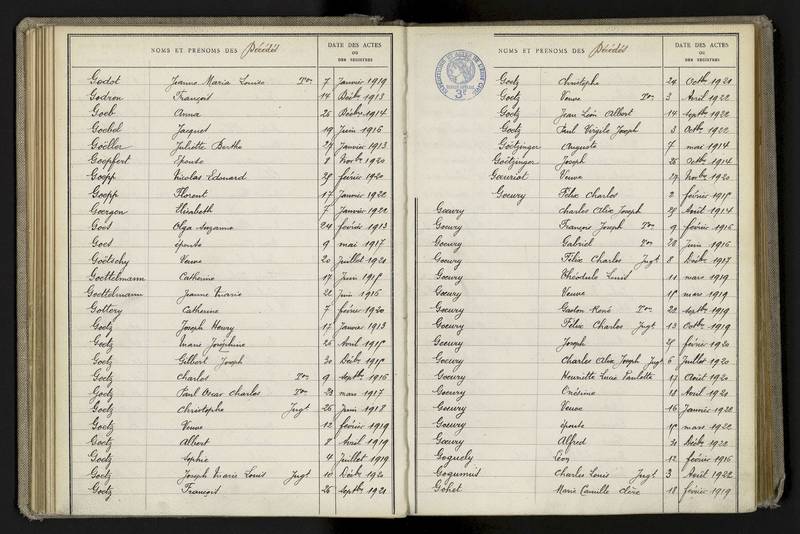 NOMS ET PRÉNOMS DES Décédés DATE DES ACTES OU DES REGISTRES
Godot Jeanne Maria Louise Ton 7 Janvier 1919
Godron François 14 Décbre 1913
Goeb Anna 25 Décbre 1914
Goebel Jacques 19 Juin 1916
Goëller Juliette Berthe 27 Janvier 1913
Goepfert épouse 8 Novbre 1920
Goepp Nicolas Edouard 28 février 1920
Goepp Florent 17 Janvier 1922
Goergen Elisabeth 7 Janvier 1922
Goes Olga Suzanne 24 février 1913
Goes épouse 9 mai 1917
Goetschy Veuve 20 Juillet 1921
Goettelmann Catherine 17 Juin 1918
Goettelmann Jeanne Marie 22 Juin 1916
Gottery Catherine 7 février 1920
Goetz Joseph Henry 17 Janvier 1913
Goetz Marie Joséphine 26 Avril 1918
Goetz Gilbert Joseph 30 Décbre 1918
Goetz Charles Ton 9 Septbre 1916
Goetz Paul Oscar Charles Ton 23 mars 1917
Goetz Christophe Jugt 26 Juin 1918
Goetz Veuve 12 février 1919
Goetz Albert 8 Avril 1919
Goetz Sophie 4 Juillet 1919
Goetz Joseph Marie Louis Jugt 10 Décbre 1920
Goetz François 26 Septbre 1921
NOMS ET PRÉNOMS DES Décédés DATE DES ACTES OU DES REGISTRES
Goetz Christophe 24 Octbre 1921
Goetz Veuve Ton 3 Avril 1922
Goetz Jean Léon Albert 14 Septbre 1922
Goetz Paul Virgile Joseph 3 Octbre 1922
Goëtzinger Auguste 7 mai 1914
Goëtzinger Joseph 26 Octbre 1914
Goeuriot Veuve 29 Novbre 1920
Goeury Félix Charles 2 février 1918
Goeury Charles Alix Joseph 28 Août 1914
Goeury François Joseph Ton 9 février 1916
Goeury Gabriel Ton 20 Juin 1916
Goeury Félix Charles Jugt 8 Décbre 1917
Goeury Théodule Louis 11 mars 1919
Goeury Veuve 18 mars 1919
Goeury Gaston René Ton 22 Septbre 1919
Goeury Félix Charles Jugt 13 Octbre 1919
Goeury Joseph 28 février 1920
Goeury Charles Alix Joseph Jugt 6 Juillet 1920
Goeury Henriette Lucie Paulette 17 Août 1920
Goeury Onésime 18 Avril 1920
Goeury Veuve 16 Janvier 1922
Goeury épouse 18 mars 1922
Goeury Alfred 30 Décbre 1920
Goguely Léon 12 février 1916
Charles Louis Jugt 3 Avril 1922
Gohet Marie Camille 18 février 1919
3F